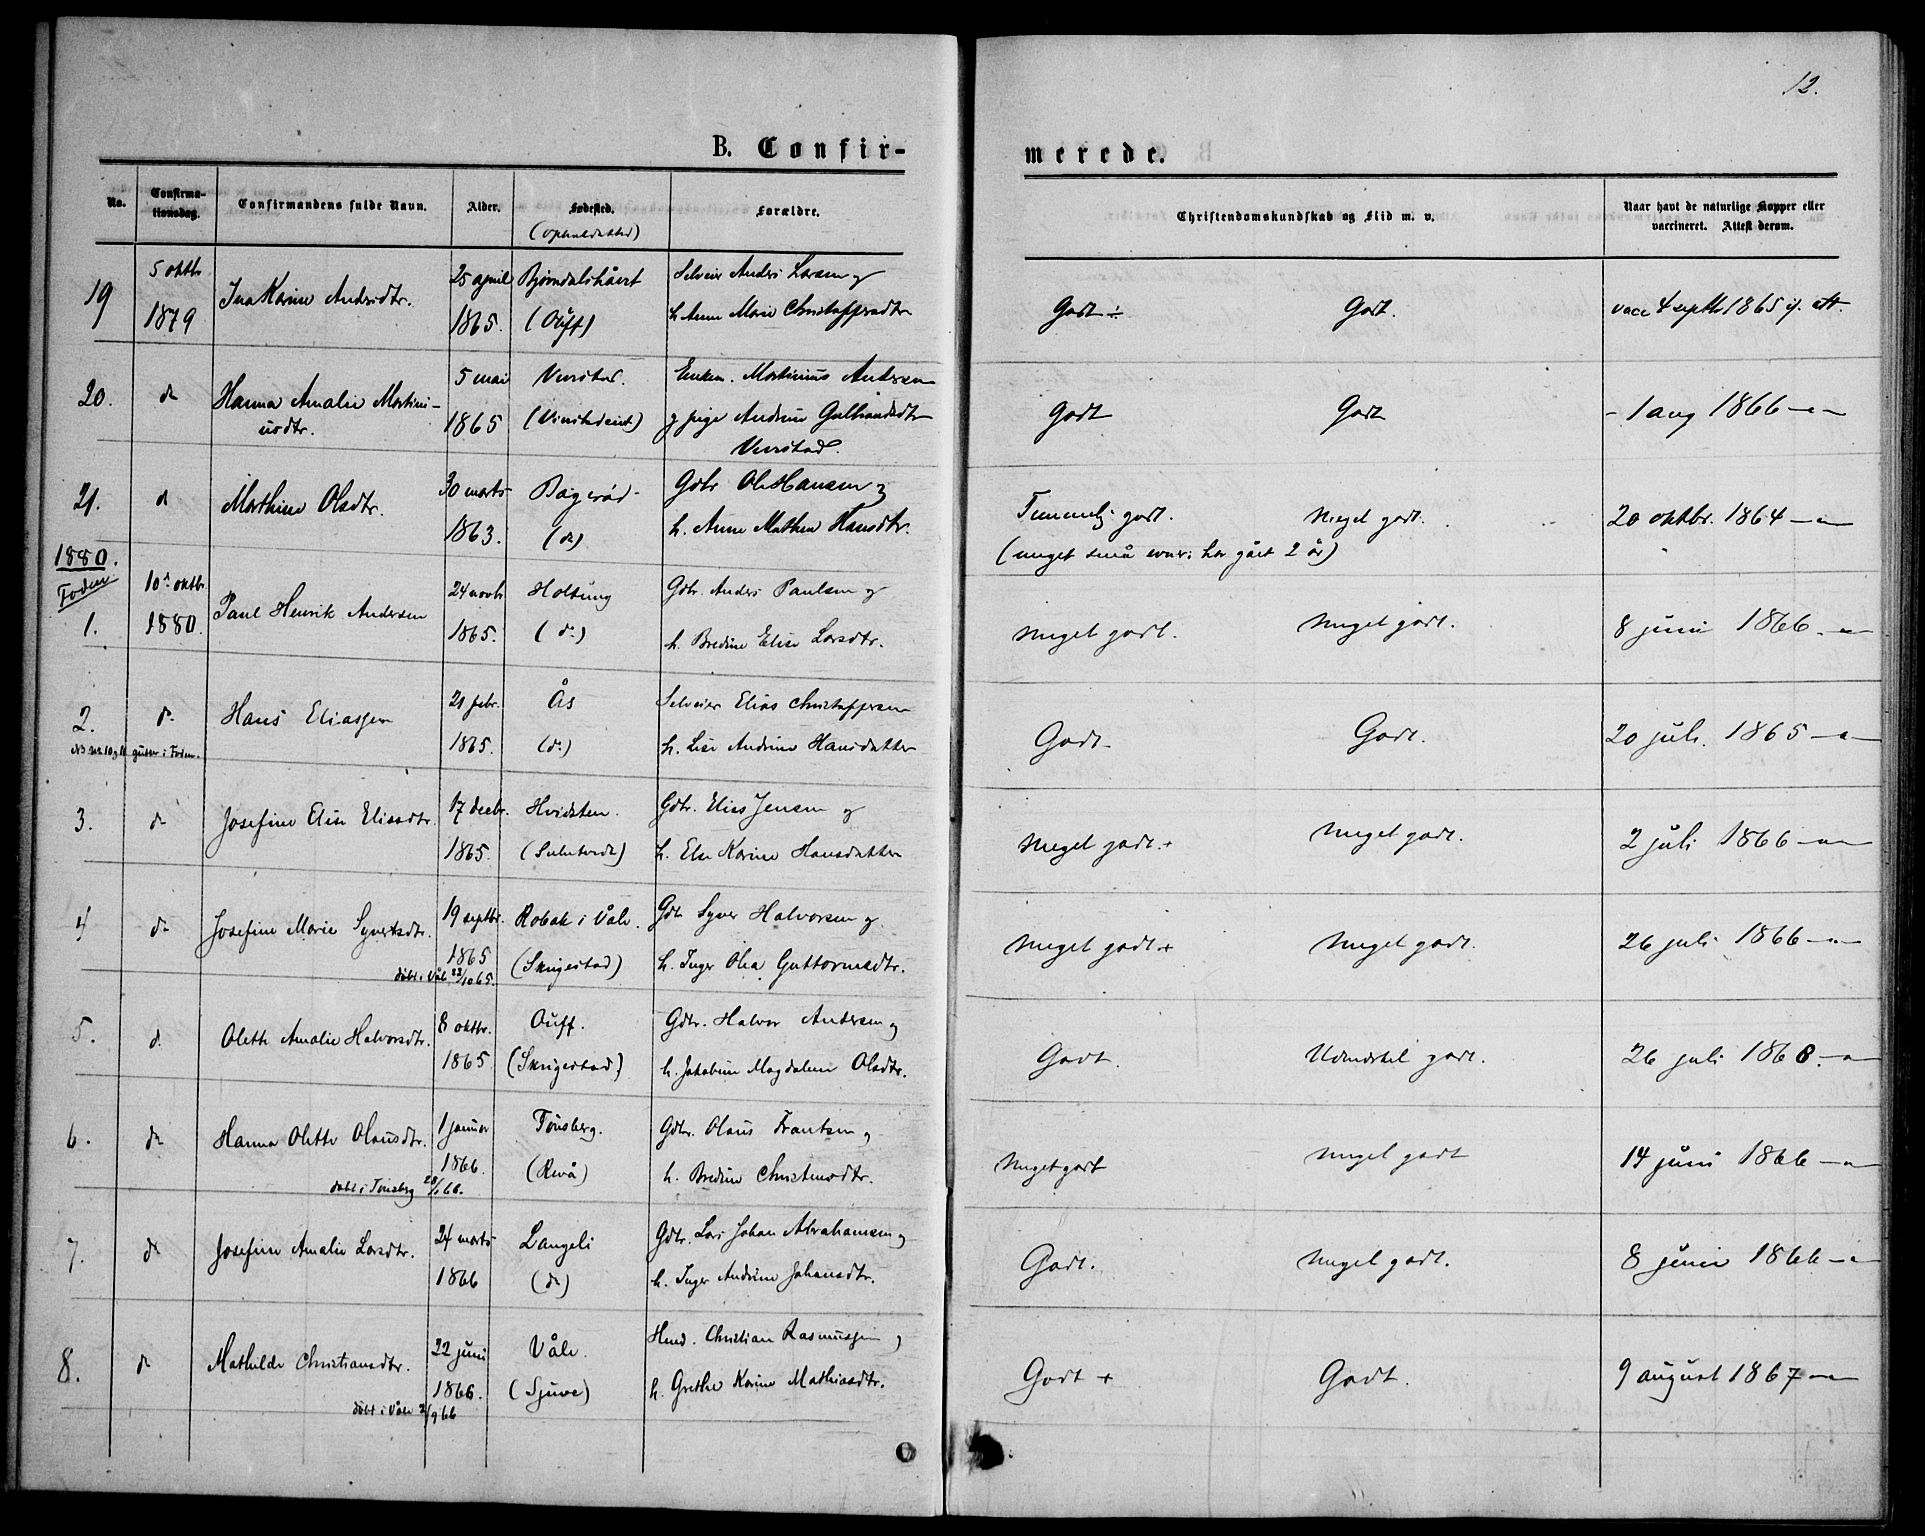 12.
B. Confir-
merede.
No.
Confirma-
tionsdag.
Confirmandens fulde Navn.
Alder.
Fødested.
(Opholdssted)
Forældre.
Christendomskundskab og Flid m. v.
Naar havt de naturlige Kopper eller
vaccineret. Attest derom.
19
5 oktbr
1879
Ina Karine Andersdtr.
25 april
1865.
Selveier Anders Larsen og
h. Anne Marie Christoffersdtr
Godt ÷
Godt.
vacc 4 septbr 1865 if. att.
20.
do
Hanna Amalie Martini-
usdtr.
5 mai
1865
Martinius Andersen
og pige Andrine Gulbrandsdtr
Godt
Godt
- 1 aug 1866 — " —
21.
do
Marthine Olsdtr.
30 marts
1863.
Bagerød
(do)
Gdbr Ole Hansen og
h. Anne Mathea Hansdtr.
Temmelig godt.
Meget godt.
(meget små evner; har gået 2 år)
20 oktbr. 1864 — " —
1880.
Foden
1.
10de oktbr.
1880.
Paul Henrik Andersen
24 novbr
1865.
Holtung
(do)
Gdbr. Anders Paulsen og
h. Bredine Elise Larsdtr.
Meget godt.
Meget godt.
8 juni 1866. — " —
2.
do
Hans Eliassen
21 febr.
1865.
Ås
(do)
Selveier Elias Christoffersen
h. Lise Andrine Hansdatter
Godt
Godt.
20 juli. 1865 — " —
gutter i Foden.
3.
do
Josefine Elise Eliasdtr.
17 decbr.
1865.
Hvidsten.
Gdbr. Elias Jensen og
h. Else Karine Hansdatter
Meget godt. +
Meget godt.
2 juli 1866 — " —
4
do
Josefine Marie Syvertsdtr.
19 septbr.
1865
døbt i Våle 22/10 65.
Robak i Våle.
(Skrigestad)
Gdbr Syver Halvorsen og
h. Inger Olea Guttormsdtr.
Meget godt +
Meget godt.
26 juli 1866 — " —
5.
do
Olette Amalie Halvorsdtr.
8 oktbr.
1865
Ouff.
(Skrigestad)
Gdbr. Halvor Andersen og
h. Jakobine Magdalene Olsdtr.
Godt.
Udmærket godt.
26 juli 1866. — " —
6.
do
Hanna Olette Olausdtr.
1 januar
1866.
døbt i Tønsberg 28/1 66.
Tønsberg.
(Revå)
Gdbr. Olaus Frantsen og
h. Bredine Christensdtr.
Meget godt
Meget godt
14 juni 1866 — " —
7.
do
Josefine Amalie Larsdtr.
24 marts
1866
Langeli
(do)
Gdbr. Lars Johan Abrahamsen og
h. Inger Andrine Johansdtr.
Godt.
Meget godt.
8 juni 1866 — " —
8.
do
Mathilde Christiansdtr.
22 juni
1866.
døbt i Våle 2/9 66
Våle.
(Sjuve)
Husm. Christian Rasmussen og
h. Grethe Karine Mathiasdtr.
Godt +
Godt.
9 august 1867 — " —